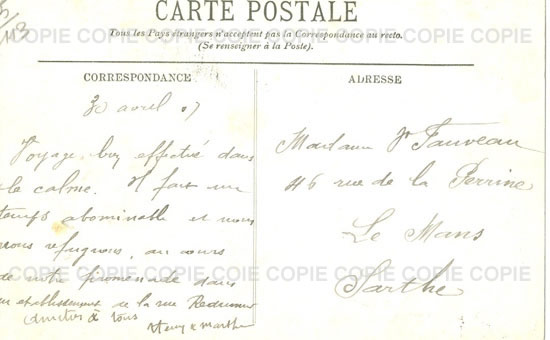 CARTE POSTALE
Tous les Pays étrangers n'acceptent pas la Correspondance au recto.
(Se renseigner à la Poste).
CORRESPONDANCE
30 avril 07
Voyage bien effectué dans
le calme. Il fait un
temps abominable et nous
nous refugions, au cours
de notre promenade dans
un etablissement de la rue
à tous
Henry & Marthe
ADRESSE
Madame Fauveau
46 rue de la Perrine
Le Mans
Sarthe
COPIE COPIE COPIE COPIE COPIE COPIE COPIE
COPIE COPIE COPIE COPIE COPIE COPIE COPIE
COPIE COPIE COPIE COPIE COPIE COPIE COPIE